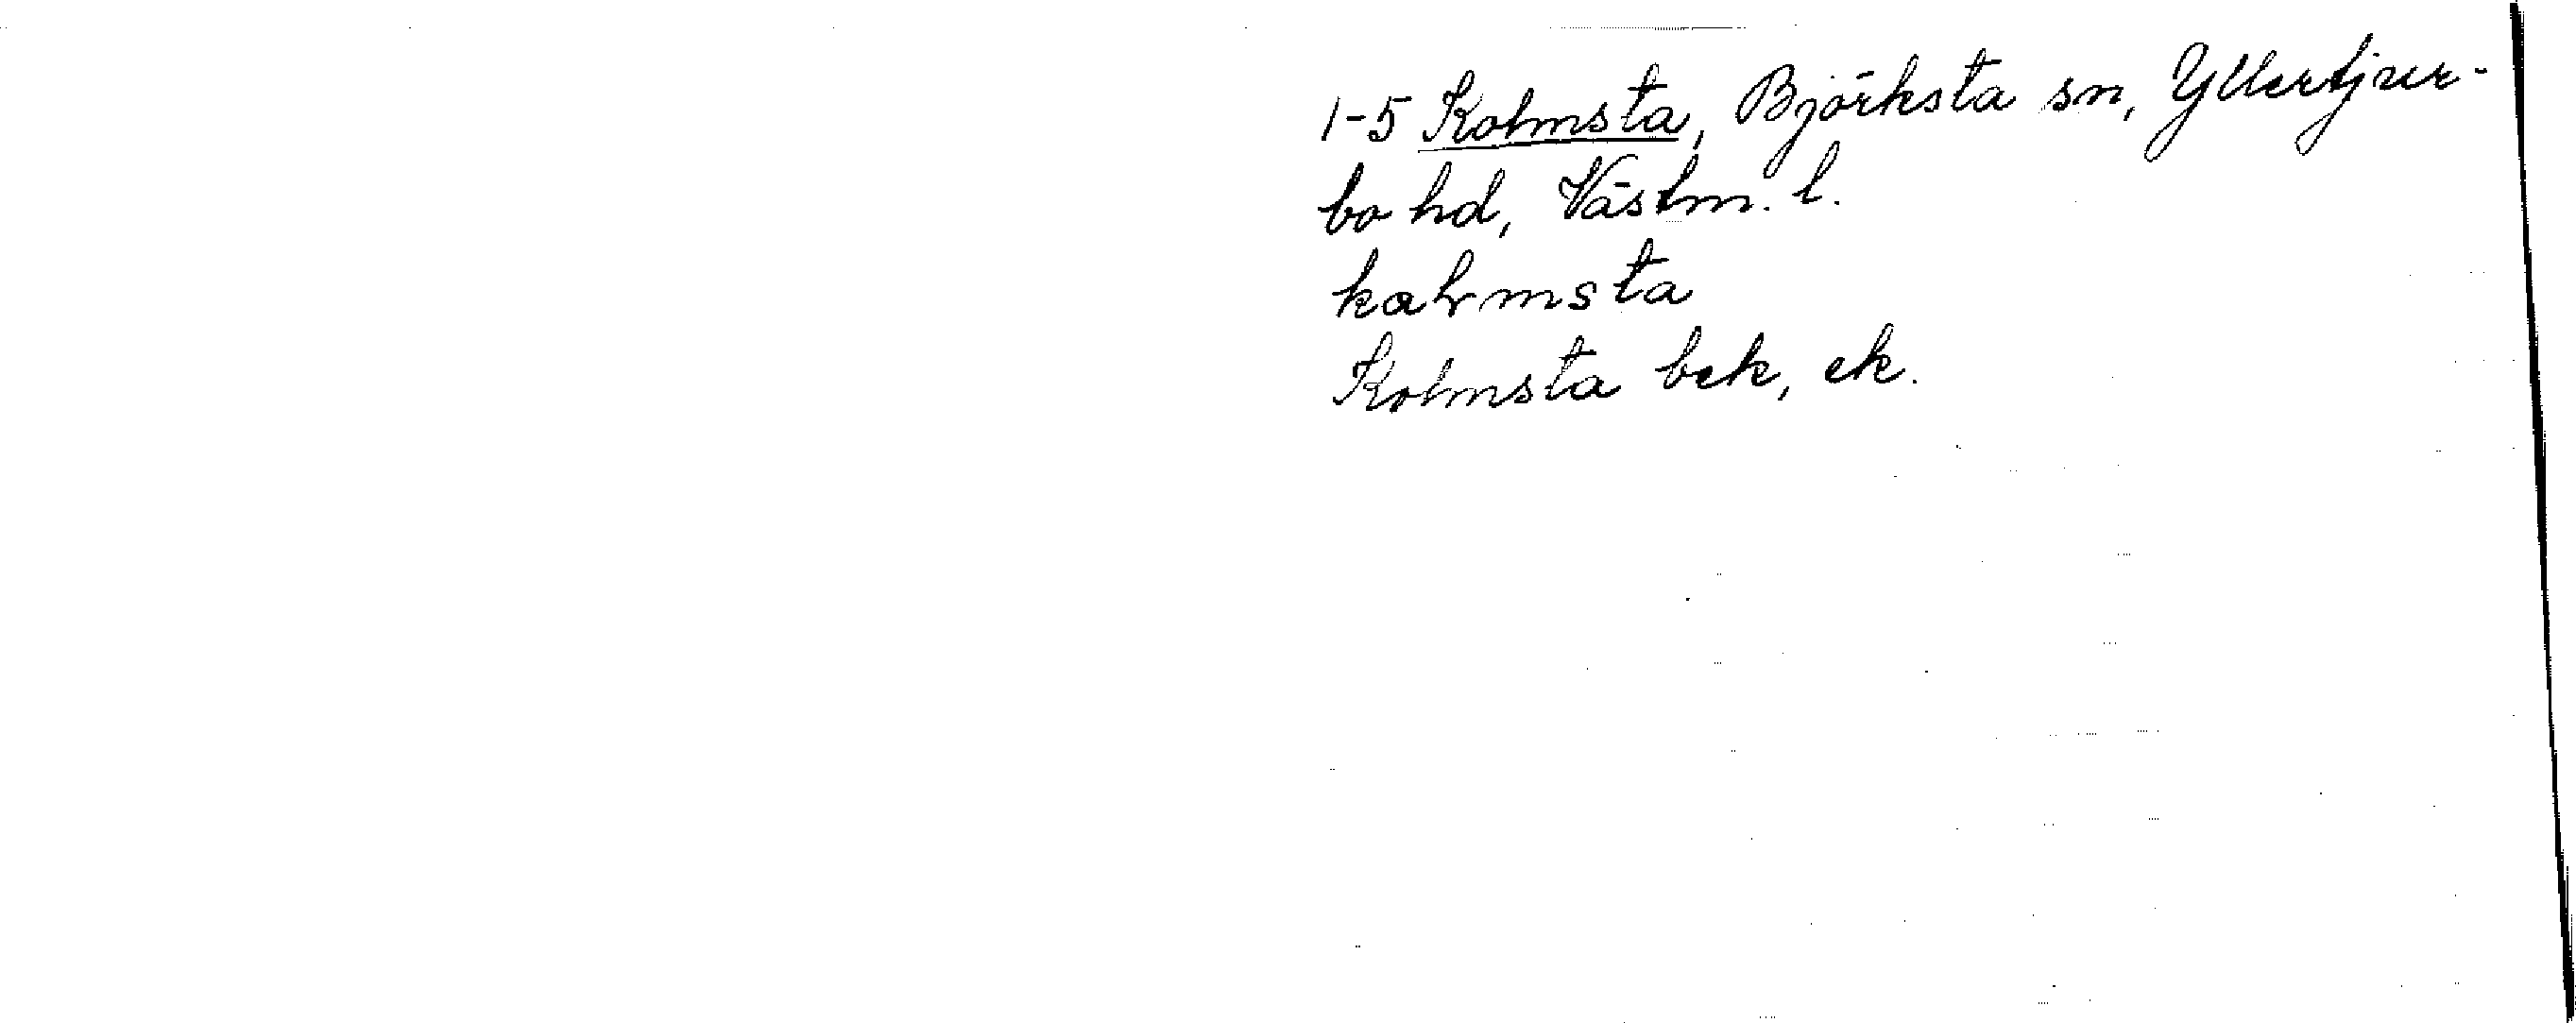 1-5 Kolmsta, Björksta sn, Yttertjur-
bo hd, Västm. l.
kalmsta
Kolmsta bek, ek.